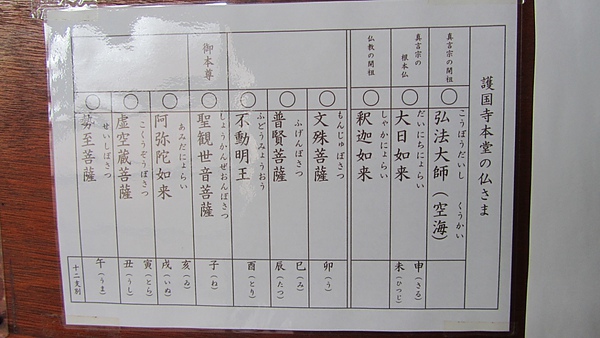 護国寺本堂の仏さま
真言宗の開祖
○
弘法大師（空海）
こうぼうだいし　くうかい
真言宗の
根本仏
○
大日如来
だいにちにょらい
申（さる）
未（ひつじ）
仏教の開祖
○
釈迦如来
しゃかにょらい
○
文殊菩薩
もんじゅぼさつ
卯（う）
○
普賢菩薩
ふげんぼさつ
巳（み）
辰（たつ）
○
不動明王
ふどうみょうおう
酉（とり）
御本尊
○
聖観世音菩薩
しょうかんぜおんぼさつ
子（ね）
○
阿弥陀如来
あみだにょらい
亥（ゐ）
戌（いぬ）
○
虚空蔵菩薩
こくうぞうぼさつ
寅（とら）
丑（うし）
○
勢至菩薩
せいしぼさつ
午（うま）
十二支別